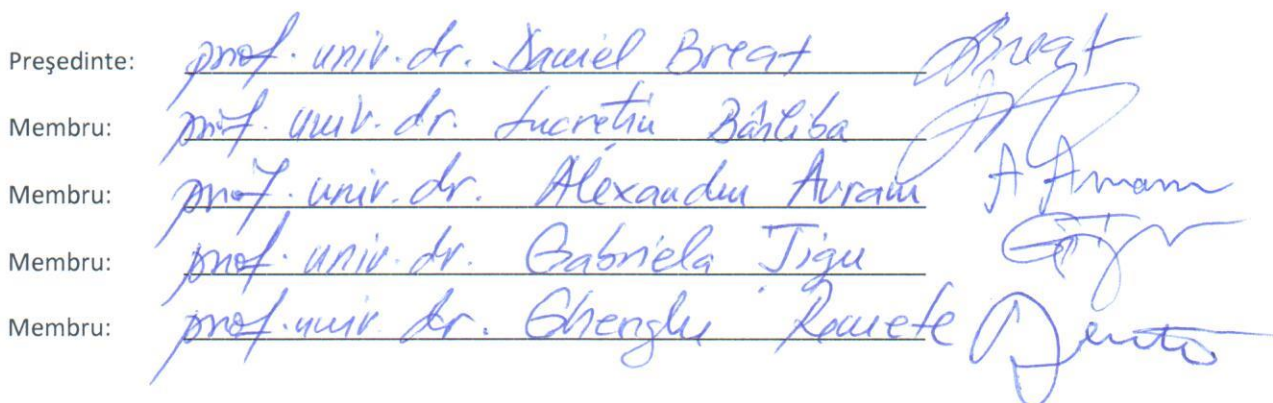 Președinte: prof. univ. dr. Daniel Breaz Breaz
Membru: prof. univ. dr. Lucrețiu Bârliba
Membru: prof. univ. dr. Alexandru Avram A Avram
Membru: prof. univ. dr. Gabriela Țigu
Membru: prof. univ. dr.